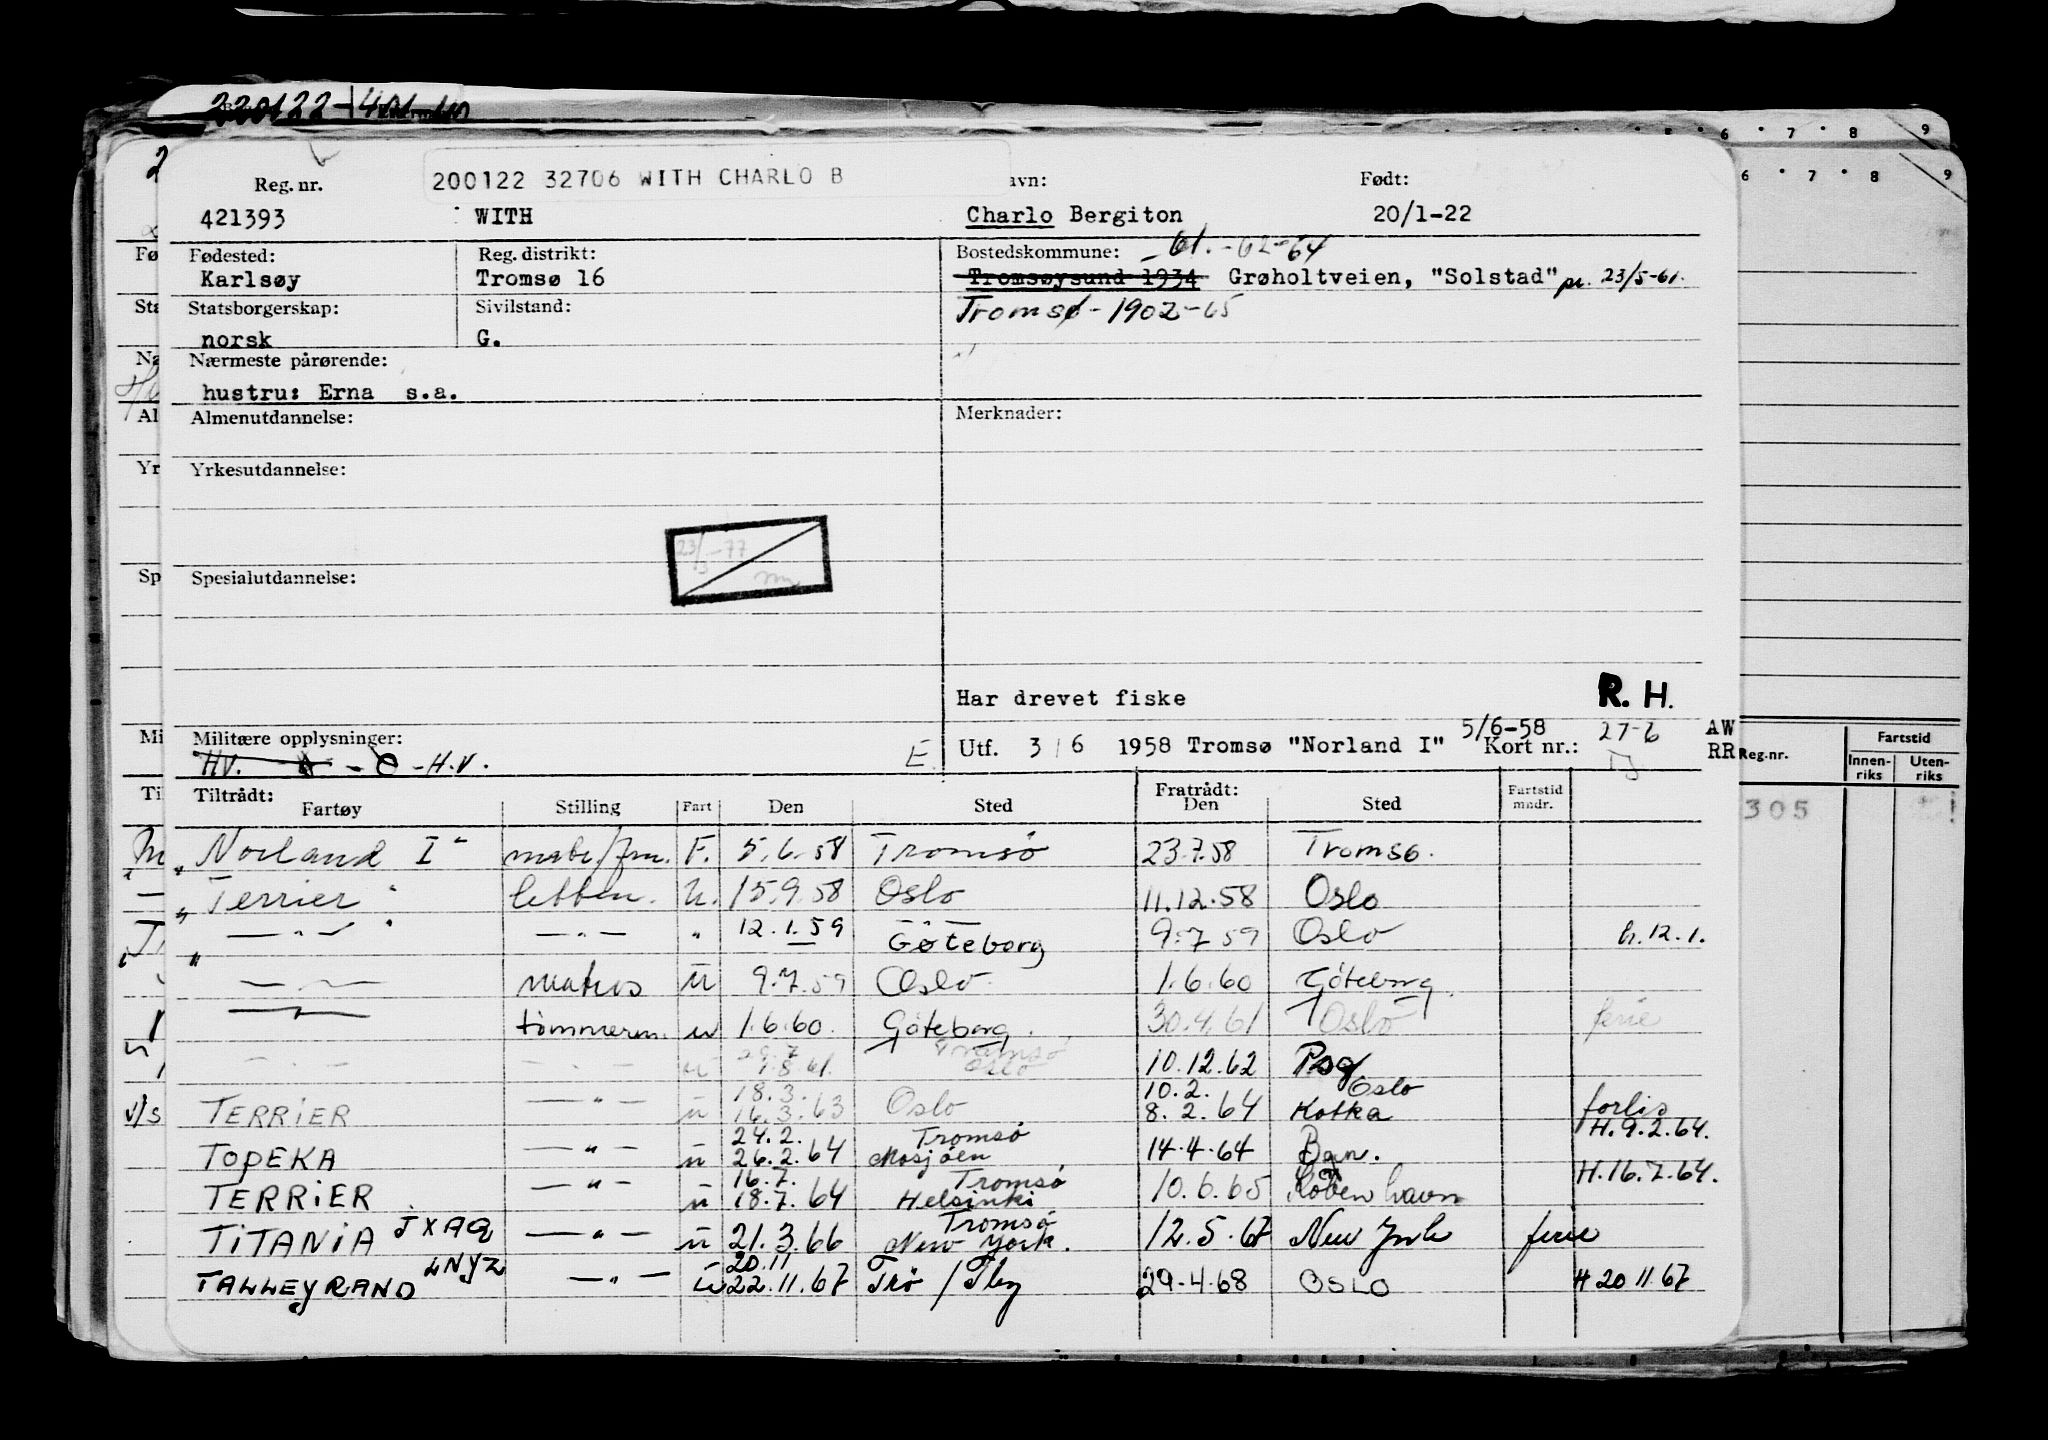 220122
6 7 8 9
6 7 8 9
200122 32706 WITH CHARLO B
Reg. nr. avn: Født:
421393 WITH Charlo Bergiton 20/1-22
Fødested: Reg. distrikt: Bostedskommune: -61.-62-64
Karlsøy Tromsø 16 Tromsøysund 1934 Grøholtveien, "Solstad" pr. 23/5-61.
Statsborgerskap: Sivilstand: Tromsø-1902-65
norsk G.
Nærmeste pårørende:
hustru: Erna s.a.
Almenutdannelse: Merknader:
Yrkesutdannelse:
23/3-77
Spesialutdannelse:
Har drevet fiske R. H.
Militære opplysninger: E. Utf. 3/6 1958 Tromsø "Norland I" 5/6-58 Kort nr.: 27-6 AW
HV. - H.V. RR Reg.nr. Fartstid
Innen-riks Uten-riks
Tiltrådt: Fratrådt:
Fartøy Stilling Fart Den Sted Den Sted Fartstid mndr.
305
"Norland I" F. 5.6.58 Tromsø 23.7.58 Tromsø.
"Terrier" U. 15.9.58 Oslo 11.12.58 Oslo
" — " — " — " — " 12.1.59 Göteborg 9.7.59 Oslo h. 12.1.
— " — matros u 9.7.59 Oslo 1.6.60 Göteborg.
— " — tømmerm. u 1.6.60. Göteborg. 30.4.61 Oslo ferie
— " — — " — u 29.7 Tromsø
1.8.61. Oslo 10.12.62 Psg
18.3. 10.2. Oslo
TERRIER — " — u 16.3.63 Oslo 8.2.64 Kotka forlis
24.2. Tromsø H. 9.2.64.
TOPEKA — " — u 26.2.64 Mosjøen 14.4.64
16.7. Tromsø H. 16.7.64.
TERRIER — " — u 18.7.64 Helsinki 10.6.65 København
Tromsø
TITANIA JXAQ — " — u 21.3.66 New York. 12.5.67 New York ferie
LNYZ 20.11
TALLEYRAND — " — u 22.11.67 Trø / Fby 29-4-68 OSLO H 20 11.67